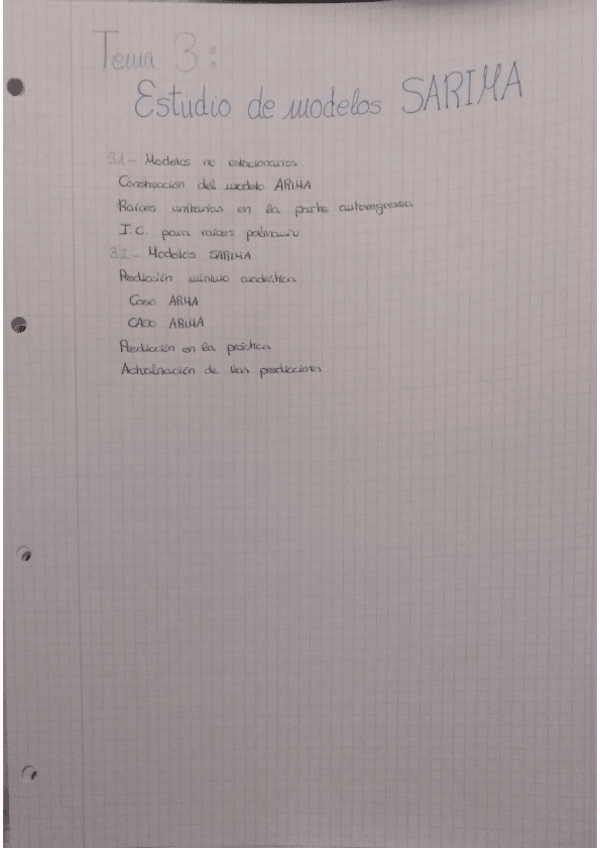 Tema 3:
Estudio de modelos SARIMA
3.1- Modelos no estacionarios
Construcción del modelo ARIMA
Raíces unitarias en la parte autorregresiva
I.C. para raíces
3.2- Modelos SARIMA
Predicción mínimo cuadrática
Caso ARMA
CASO ARIMA
Predicción en la práctica
Actualización de las predicciones